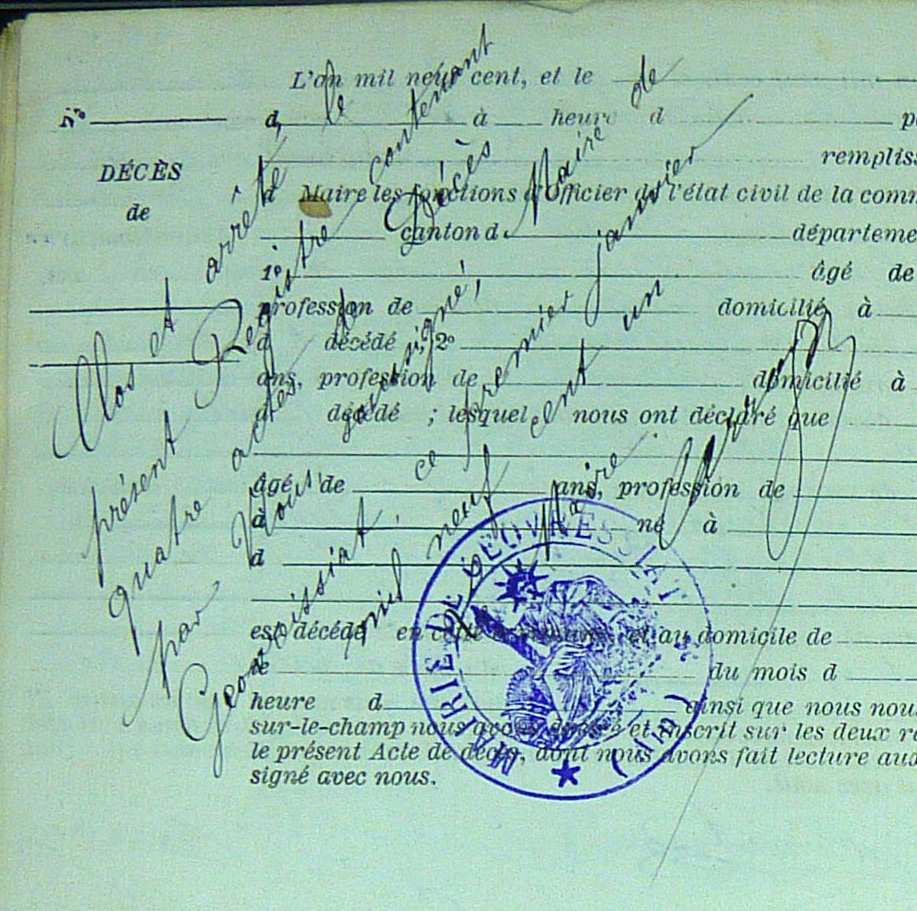 L'an mil neuf cent, et le
N°
d à heure d p
DÉCÈS
remplis
d Maire les fonctions d'Officier de l'état civil de la com
de
canton d départeme
1° âgé de
profession de domicilié à
d décédé ; 2°
ans, profession de domicilié à
d décédé ; lesquel nous ont déclaré que
âgé de ans, profession de
à né à
d
est décédé en cette et au domicile de
le du mois d
heure d ainsi que nous nou
sur-le-champ nous avons dressé et inscrit sur les deux r
le présent Acte de décès, dont nous avons fait lecture aux
signé avec nous.
Clos et arrêté, le
présent Registre contenant
quatre actes de Décès
par Nous, soussigné, Maire de
Geovreissiat, ce premier janvier
mil neuf cent un
Le Maire.
MAIRIE DE GEOVREISSIAT (AIN)